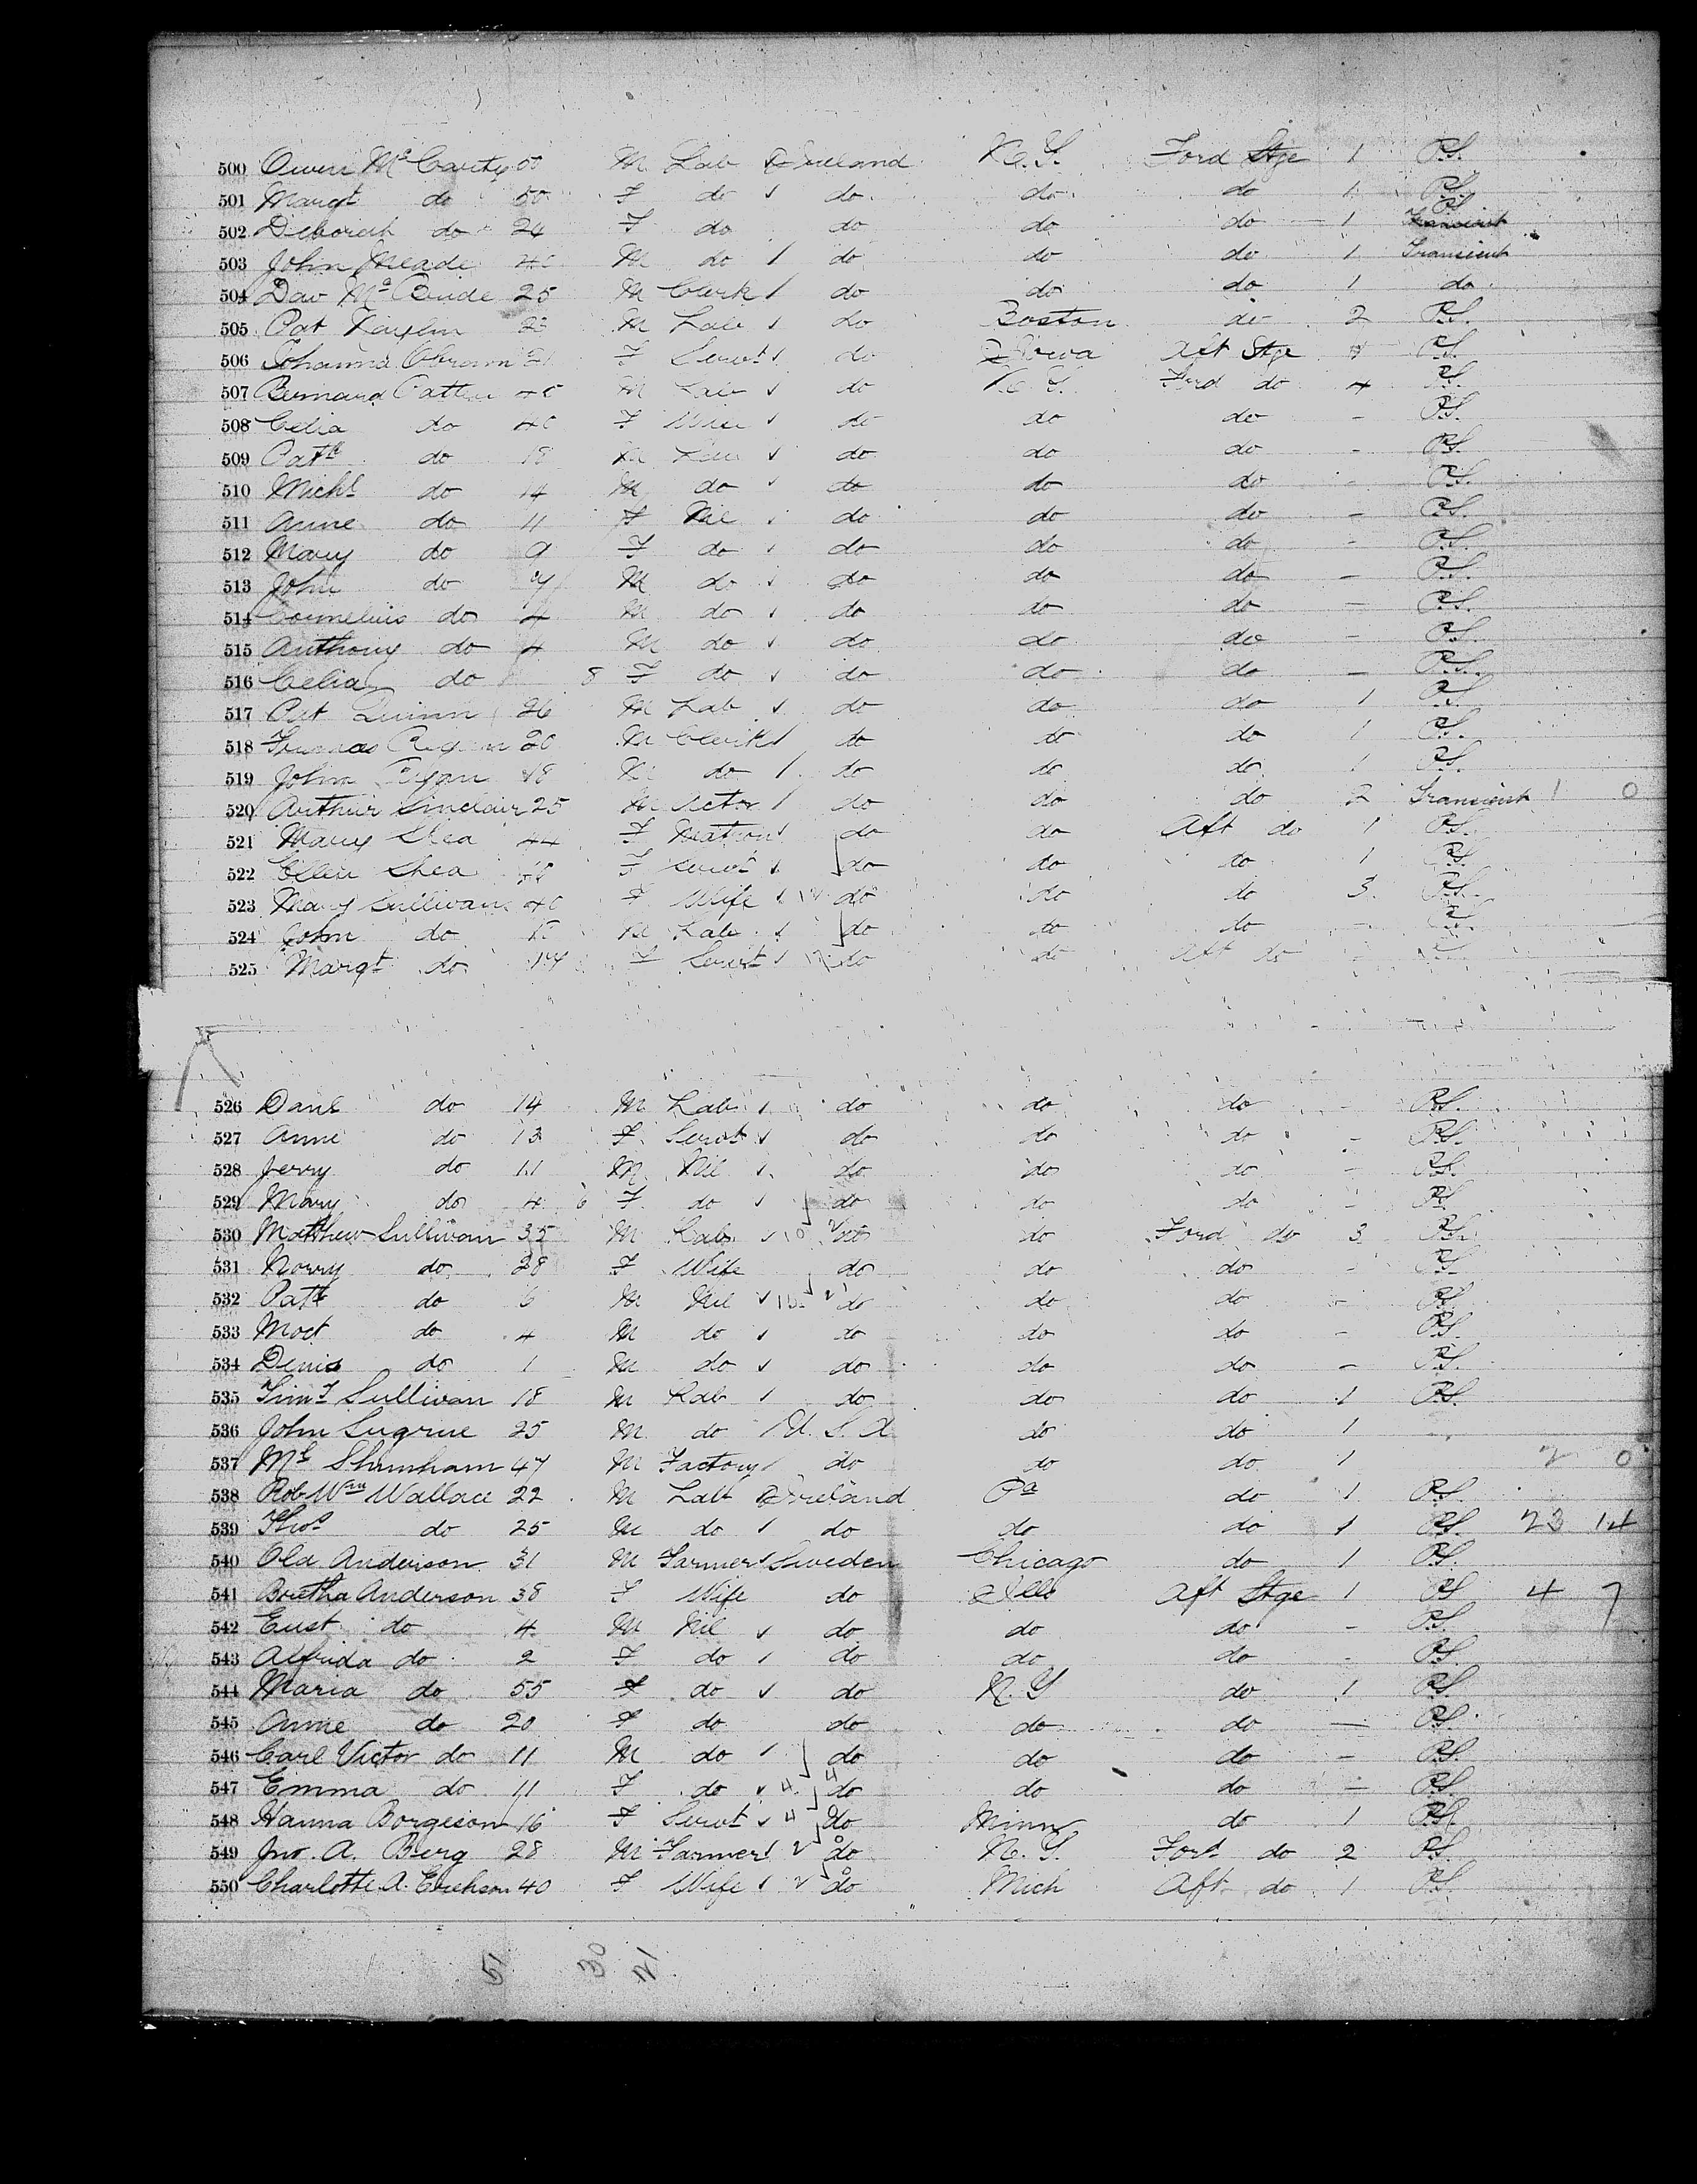 500 Owen McCarty 50 M Lab Ireland N.Y. Ford Stge 1 P.S.
501 Margt do 50 F do do do do 1 P.S.
502 Deborah do 24 F do do do do 1 P.S.
503 John Meade M do do do do 1 Transient
504 Dav McBride 25 M Clerk do do do 1 do
505 Pat M Lab do Boston do 2 P.S.
506 Johanna F Servt do Iowa Aft Stge P.S.
507 Bernard Patten 40 M Lab do N.Y. Ford do 4 P.S.
508 Celia do 40 F Wife do do do - P.S.
509 Patk do 18 M Lab do do do - P.S.
510 Michl do 14 M do do do do - P.S.
511 Anne do 11 F Nil do do do - P.S.
512 Mary do 9 F do do do do - P.S.
513 John do 7 M do do do do - P.S.
514 Cornelius do 4 M do do do do - P.S.
515 Anthony do 4 M do do do do - P.S.
516 Celia do 8 F do do do do - P.S.
517 Pat Quinn 26 M Lab do do do 1 P.S.
518 Thomas 20 M Clerk do do do 1 P.S.
519 John Ryan 18 M do do do do 1 P.S.
520 Arthur Sinclair 25 M Actor do do do 2 Transient 1 0
521 Mary Shea 44 F Matron do do Aft do 1 P.S.
522 Ellen Shea 18 F Servt do do do 1 P.S.
523 Mary Sullivan 40 F Wife do do do 3 P.S.
524 John do M Lab do do do - P.S.
525 Margt do 14 F Servt do do Aft do -
526 Danl do 14 M Lab do do do - P.S.
527 Anne do 13 F Servt do do do - P.S.
528 Jerry do 11 M Nil do do do - P.S.
529 Mary do 4 6 F do do do do - P.S.
530 Matthew Sullivan 35 M Lab do do Ford do 3 P.S.
531 Norry do 28 F Wife do do do - P.S.
532 Patk do 6 M Nil do do do - P.S.
533 Mort do 4 M do do do do - P.S.
534 Denis do 1 M do do do do - P.S.
535 Timy Sullivan 18 M Lab do do do 1 P.S.
536 John Sugrue 25 M do U.S.A do do 1
537 Ml Shunham 47 M Factory do do do 1 2 0
538 Rob Wm Wallace 22 M Lab Ireland Pa do 1 P.S.
539 Thos do 25 M do do do do 1 P.S. 23 14
540 Ola Anderson 31 M Farmer Sweden Chicago do 1 P.S.
541 Bretha Anderson 38 F Wife do Ills Aft Stge 1 P.S. 4 7
542 Eust do 4 M Nil do do do - P.S.
543 Alfrida do 2 F do do do do - P.S.
544 Maria do 55 F do do N.Y do 1 P.S.
545 Anne do 20 F do do do do - P.S.
546 Carl Victor do 11 M do do do do - P.S.
547 Emma do 11 F do 4 4 do do do - P.S.
548 Hanna Borgeson 16 F Servt 4 do Minn do 1 P.S.
549 Jno. A. Berg 28 M Farmer 2 do N.Y. Ford do 2 P.S.
550 Charlotte A. Erickson 40 F Wife 2 do Mich Aft do 1 P.S.
51 30 21